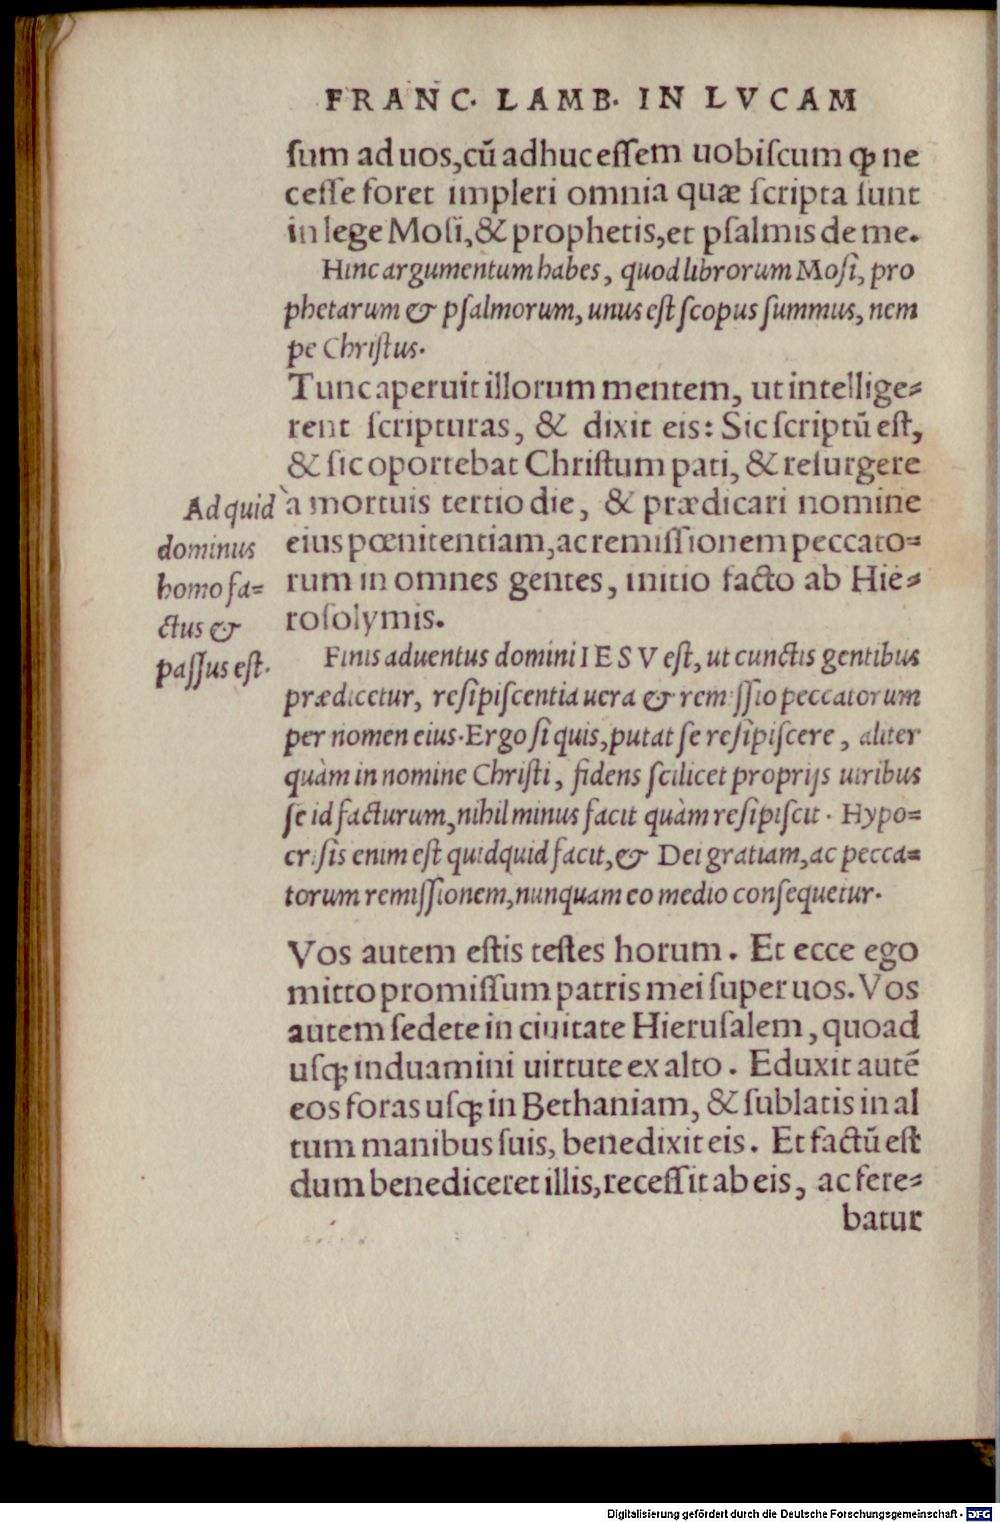 FRANC. LAMB. IN LVCAM
sum ad uos, cū adhuc essem uobiscum ꝙ ne
cesse foret impleri omnia quæ scripta sunt
in lege Mosi, & prophetis, et psalmis de me.
Hinc argumentum habes, quod librorum Mosi, pro
phetarum & psalmorum, unus est scopus summus, nem
pe Christus.
Tunc aperuit illorum mentem, ut intellige-
rent scripturas, & dixit eis: Sic scriptū est,
& sic oportebat Christum pati, & resurgere
à mortuis tertio die, & prædicari nomine
eius pœnitentiam, ac remissionem peccato-
rum in omnes gentes, initio facto ab Hie-
rosolymis.
Ad quid
dominus
homo fa-
ctus &
passus est.
Finis aduentus domini IESV est, ut cunctis gentibus
prædicetur, resipiscentia uera & remissio peccatorum
per nomen eius. Ergo si quis, putat se resipiscere, aliter
quàm in nomine Christi, fidens scilicet proprijs uiribus
se id facturum, nihil minus facit quàm resipiscit. Hypo-
crisis enim est quidquid facit, & Dei gratiam, ac pecca-
torum remissionem, nunquam eo medio consequetur.
Vos autem estis testes horum. Et ecce ego
mitto promissum patris mei super uos. Vos
autem sedete in ciuitate Hierusalem, quoad
usꝗ; induamini uirtute ex alto. Eduxit autē
eos foras usꝗ; in Bethaniam, & sublatis in al
tum manibus suis, benedixit eis. Et factū est
dum benediceret illis, recessit ab eis, ac fere-
batur
Digitalisierung gefördert durch die Deutsche Forschungsgemeinschaft - DFG